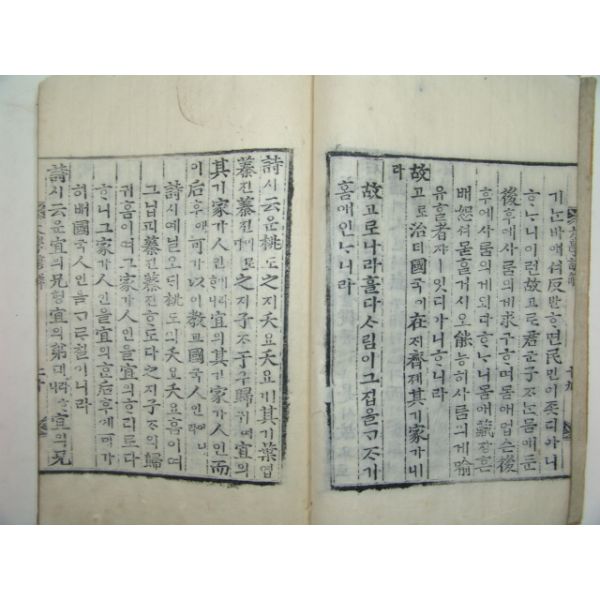 기논바애셔反반ᄒᆞ면民민이죳디아니
ᄒᆞᄂᆞ니이런故고로君군子ᄌᆞᄂᆞᆫ몸애둔
後후에사ᄅᆞᆷ의게求구ᄒᆞ며몸애업슨後
후에사ᄅᆞᆷ의게외다ᄒᆞᄂᆞ니몸애藏장ᄒᆞᆫ
배恕셔몯ᄒᆞᆯ거시오能능히사ᄅᆞᆷ의게喩
유ᄒᆞᆯ者쟈ㅣ잇디아니ᄒᆞ니라
故고로治티國국이在ᄌᆡ齊졔其기家가ᄒᆞ니
라
故고로나라홀다ᄉᆞ림이그집을ᄀᆞᄌᆞ기
홈애인ᄂᆞ니라
詩시云운桃도之지夭요夭요其기葉엽
蓁진蓁진이로다之지子ᄌᆞ于우歸귀여宜의
其기家가人인이라ᄒᆞ니宜의其기家가人인而
이后후애可가以이敎교國국人인이니라
詩시예닐오ᄃᆡ桃도의夭요夭요홈이여
그닙피蓁진蓁진ᄒᆞ도다之지子ᄌᆞ의歸
귀홈이여그家가人인을宜의ᄒᆞ리로다
ᄒᆞ니그家가人인을宜의ᄒᆞᆫ후에可가
히ᄡᅥ國국人인을ᄀᆞᄅᆞ칠이니라
詩시云운宜의兄형宜의弟뎨라ᄒᆞ니宜의兄